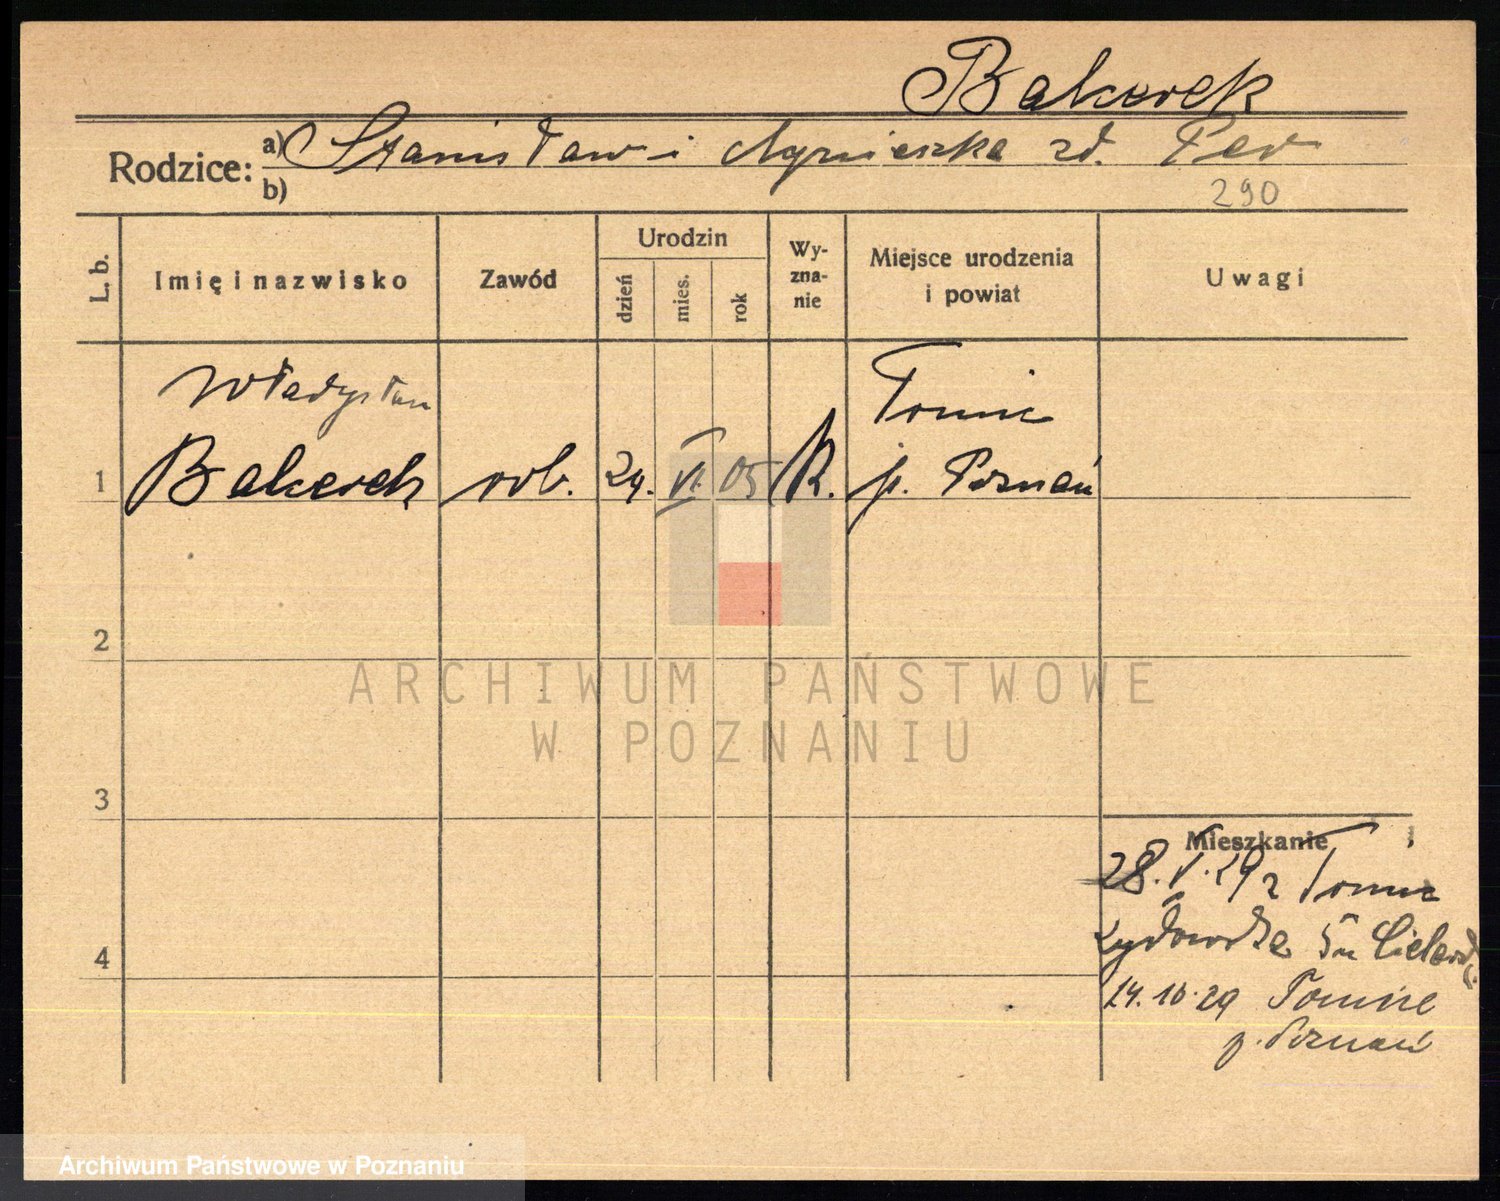 Bakerek
Rodzice: a) Stanisław i Agnieszka zd.
b)
290
L. b.
Imię i nazwisko
Zawód
Urodzin
dzień
mies.
rok
Wy-
zna-
nie
Miejsce urodzenia
i powiat
Uwagi
Władysław
Tomic
1 Bakerek rob. 24. VI. 05 R. p. Poznań
2
3
4
Mieszkanie
28. V. 29 z Tomic
Żydowska
14. 10. 29 Tomice
p. Poznań
ARCHIWUM PAŃSTWOWE
W POZNANIU
Archiwum Państwowe w Poznaniu